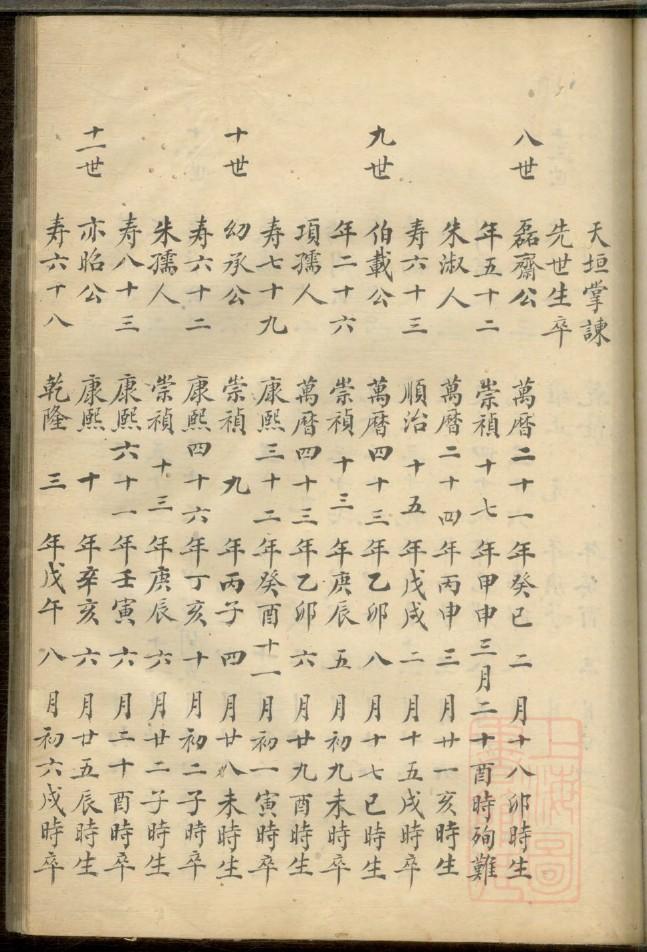 天垣掌諫
先世生卒
八世 磊齋公 萬曆二十一年癸巳二月十八卯時生
年五十二 崇禎十七年甲申三月二十酉時殉難
朱淑人 萬曆二十四年丙申三月廿一亥時生
寿六十三 順治十五年戊戌二月十五戌時卒
九世 伯載公 萬曆四十三年乙卯八月十七巳時生
年二十六 崇禎十三年庚辰五月初九未時卒
項孺人 萬曆四十三年乙卯六月廿九酉時生
寿七十九 康熙三十二年癸酉十一月初一寅時卒
十世 幼承公 崇禎九年丙子四月廿八未時生
寿六十二 康熙四十六年丁亥十月初二子時卒
朱孺人 崇禎十三年庚辰六月廿二子時生
寿八十三 康熙六十一年壬寅六月二十酉時卒
十一世 亦昭公 康熙十年辛亥六月廿五辰時生
寿六十八 乾隆三年戊午八月初六戌時卒
上海圖